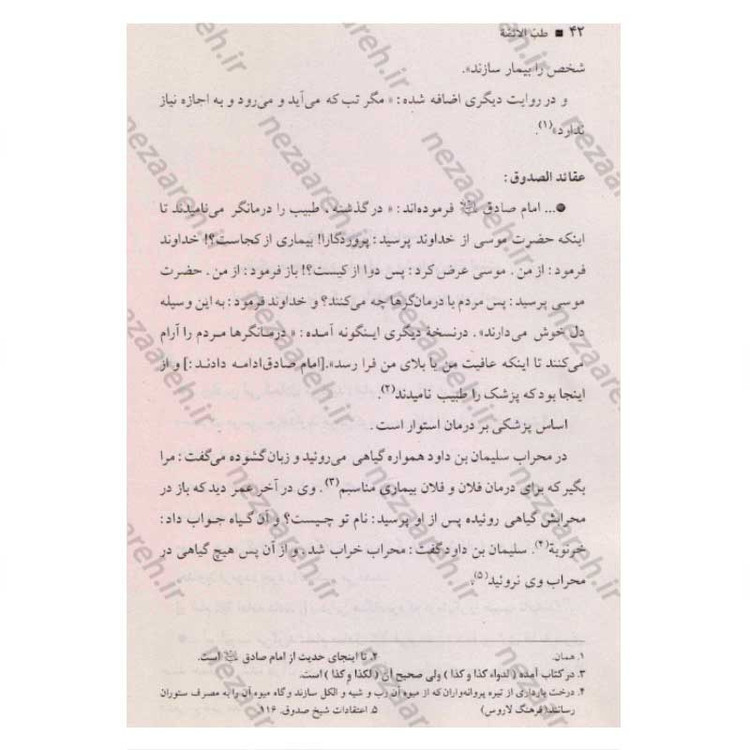 ۴۲ ■ طبّ الائمّة
شخص را بیمار سازند».
و در روایت دیگری اضافه شده: « مگر تب که می‌آید و می‌رود و به اجازه نیاز
ندارد»(۱).
عقائد الصدوق:
●... امام صادق علیه‌السلام فرموده‌اند: « درگذشته، طبیب را درمانگر می‌نامیدند تا
اینکه حضرت موسی از خداوند پرسید: پروردگارا! بیماری از کجاست؟! خداوند
فرمود: از من. موسی عرض کرد: پس دوا از کیست؟! باز فرمود: از من. حضرت
موسی پرسید: پس مردم با درمان‌گرها چه می‌کنند؟ و خداوند فرمود: به این وسیله
دل خوش می‌دارند». درنسخهٔ دیگری اینگونه آمده: « درمانگرها مردم را آرام
می‌کنند تا اینکه عافیت من یا بلای من فرا رسد».[امام صادق ادامه دادند:] و از
اینجا بود که پزشک را طبیب نامیدند(۲).
اساس پزشکی بر درمان استوار است.
در محراب سلیمان بن داود همواره گیاهی می‌روئید و زبان گشوده می‌گفت: مرا
بگیر که برای درمان فلان و فلان بیماری مناسبم(۳). وی در آخر عمر دید که باز در
محرابش گیاهی روئیده پس از او پرسید: نام تو چیست؟ و آن گیاه جواب داد:
خرنوبة(۴). سلیمان بن داود گفت: محراب خراب شد. و از آن پس هیچ گیاهی در
محراب وی نروئید(۵).
۱. همان. ۲. تا اینجای حدیث از امام صادق علیه‌السلام است.
۳. در کتاب آمده ( لدواء کذا و کذا ) ولی صحیح آن ( لکذا و کذا ) است.
۴. درخت بارداری از تیره پروانه‌واران که از میوه آن رب و شیه و الکل سازند و گاه میوه آن را به مصرف ستوران
رسانند( فرهنگ لاروس) ۵. اعتقادات شیخ صدوق. ۱۱۶.
nezaareh.ir